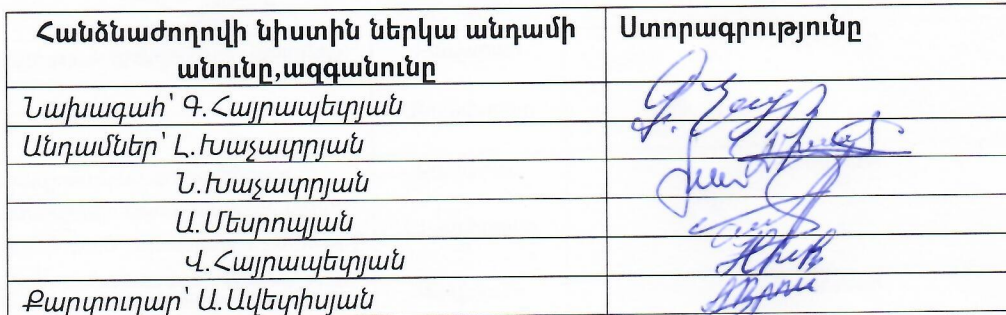 Հանձնաժողովի նիստին ներկա անդամի Ստորագրությունը
անունը,ազգանունը
Նախագահ՝ Գ.Հայրապետյան
Անդամներ՝ Լ.Խաչատրյան
Ն.Խաչատրյան
Ա.Մեսրոպյան
Վ.Հայրապետյան
Քարտուղար՝ Ա.Ավետիսյան